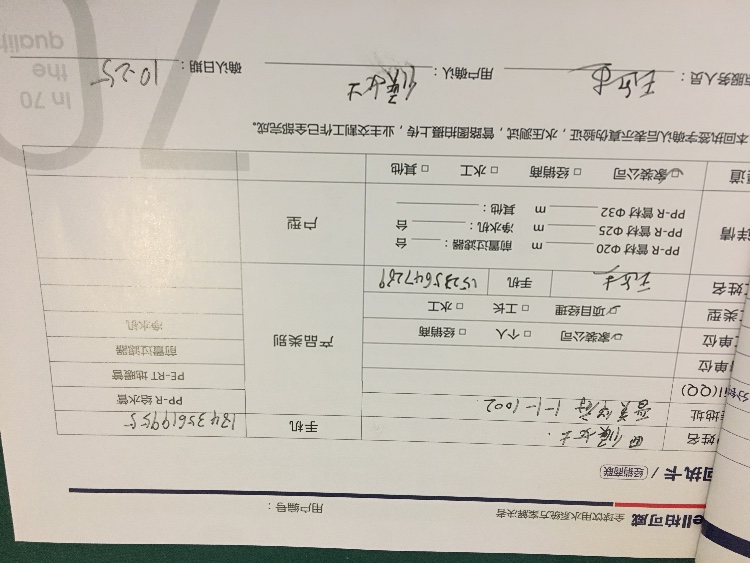 ell柏可威 全球饮用水系统方案解决者 用户编号：
回执卡 / 经销商联
姓名 手机 13435619955
地址 1-1-1002 PP-R 给水管
(QQ) PE-RT 地暖管
单位 前置过滤器
单位 家装公司 □ 个人 □ 经销商 产品类别 净水机
类型 项目经理 □ 工长 □ 水工
姓名 手机 15235647289
详情 PP-R 管材 Φ20 m 前置过滤器： 台 户型
PP-R 管材 Φ25 m 净水机： 台
PP-R 管材 Φ32 m 其他：
渠道 家装公司 □ 经销商 □ 水工 □ 其他
本回执签字确认后表示真伪验证，水压测试，管路图拍摄上传，业主交割工作已全部完成。
服务人员： 用户确认： 确认日期： 10-25
In 70
the
qualit